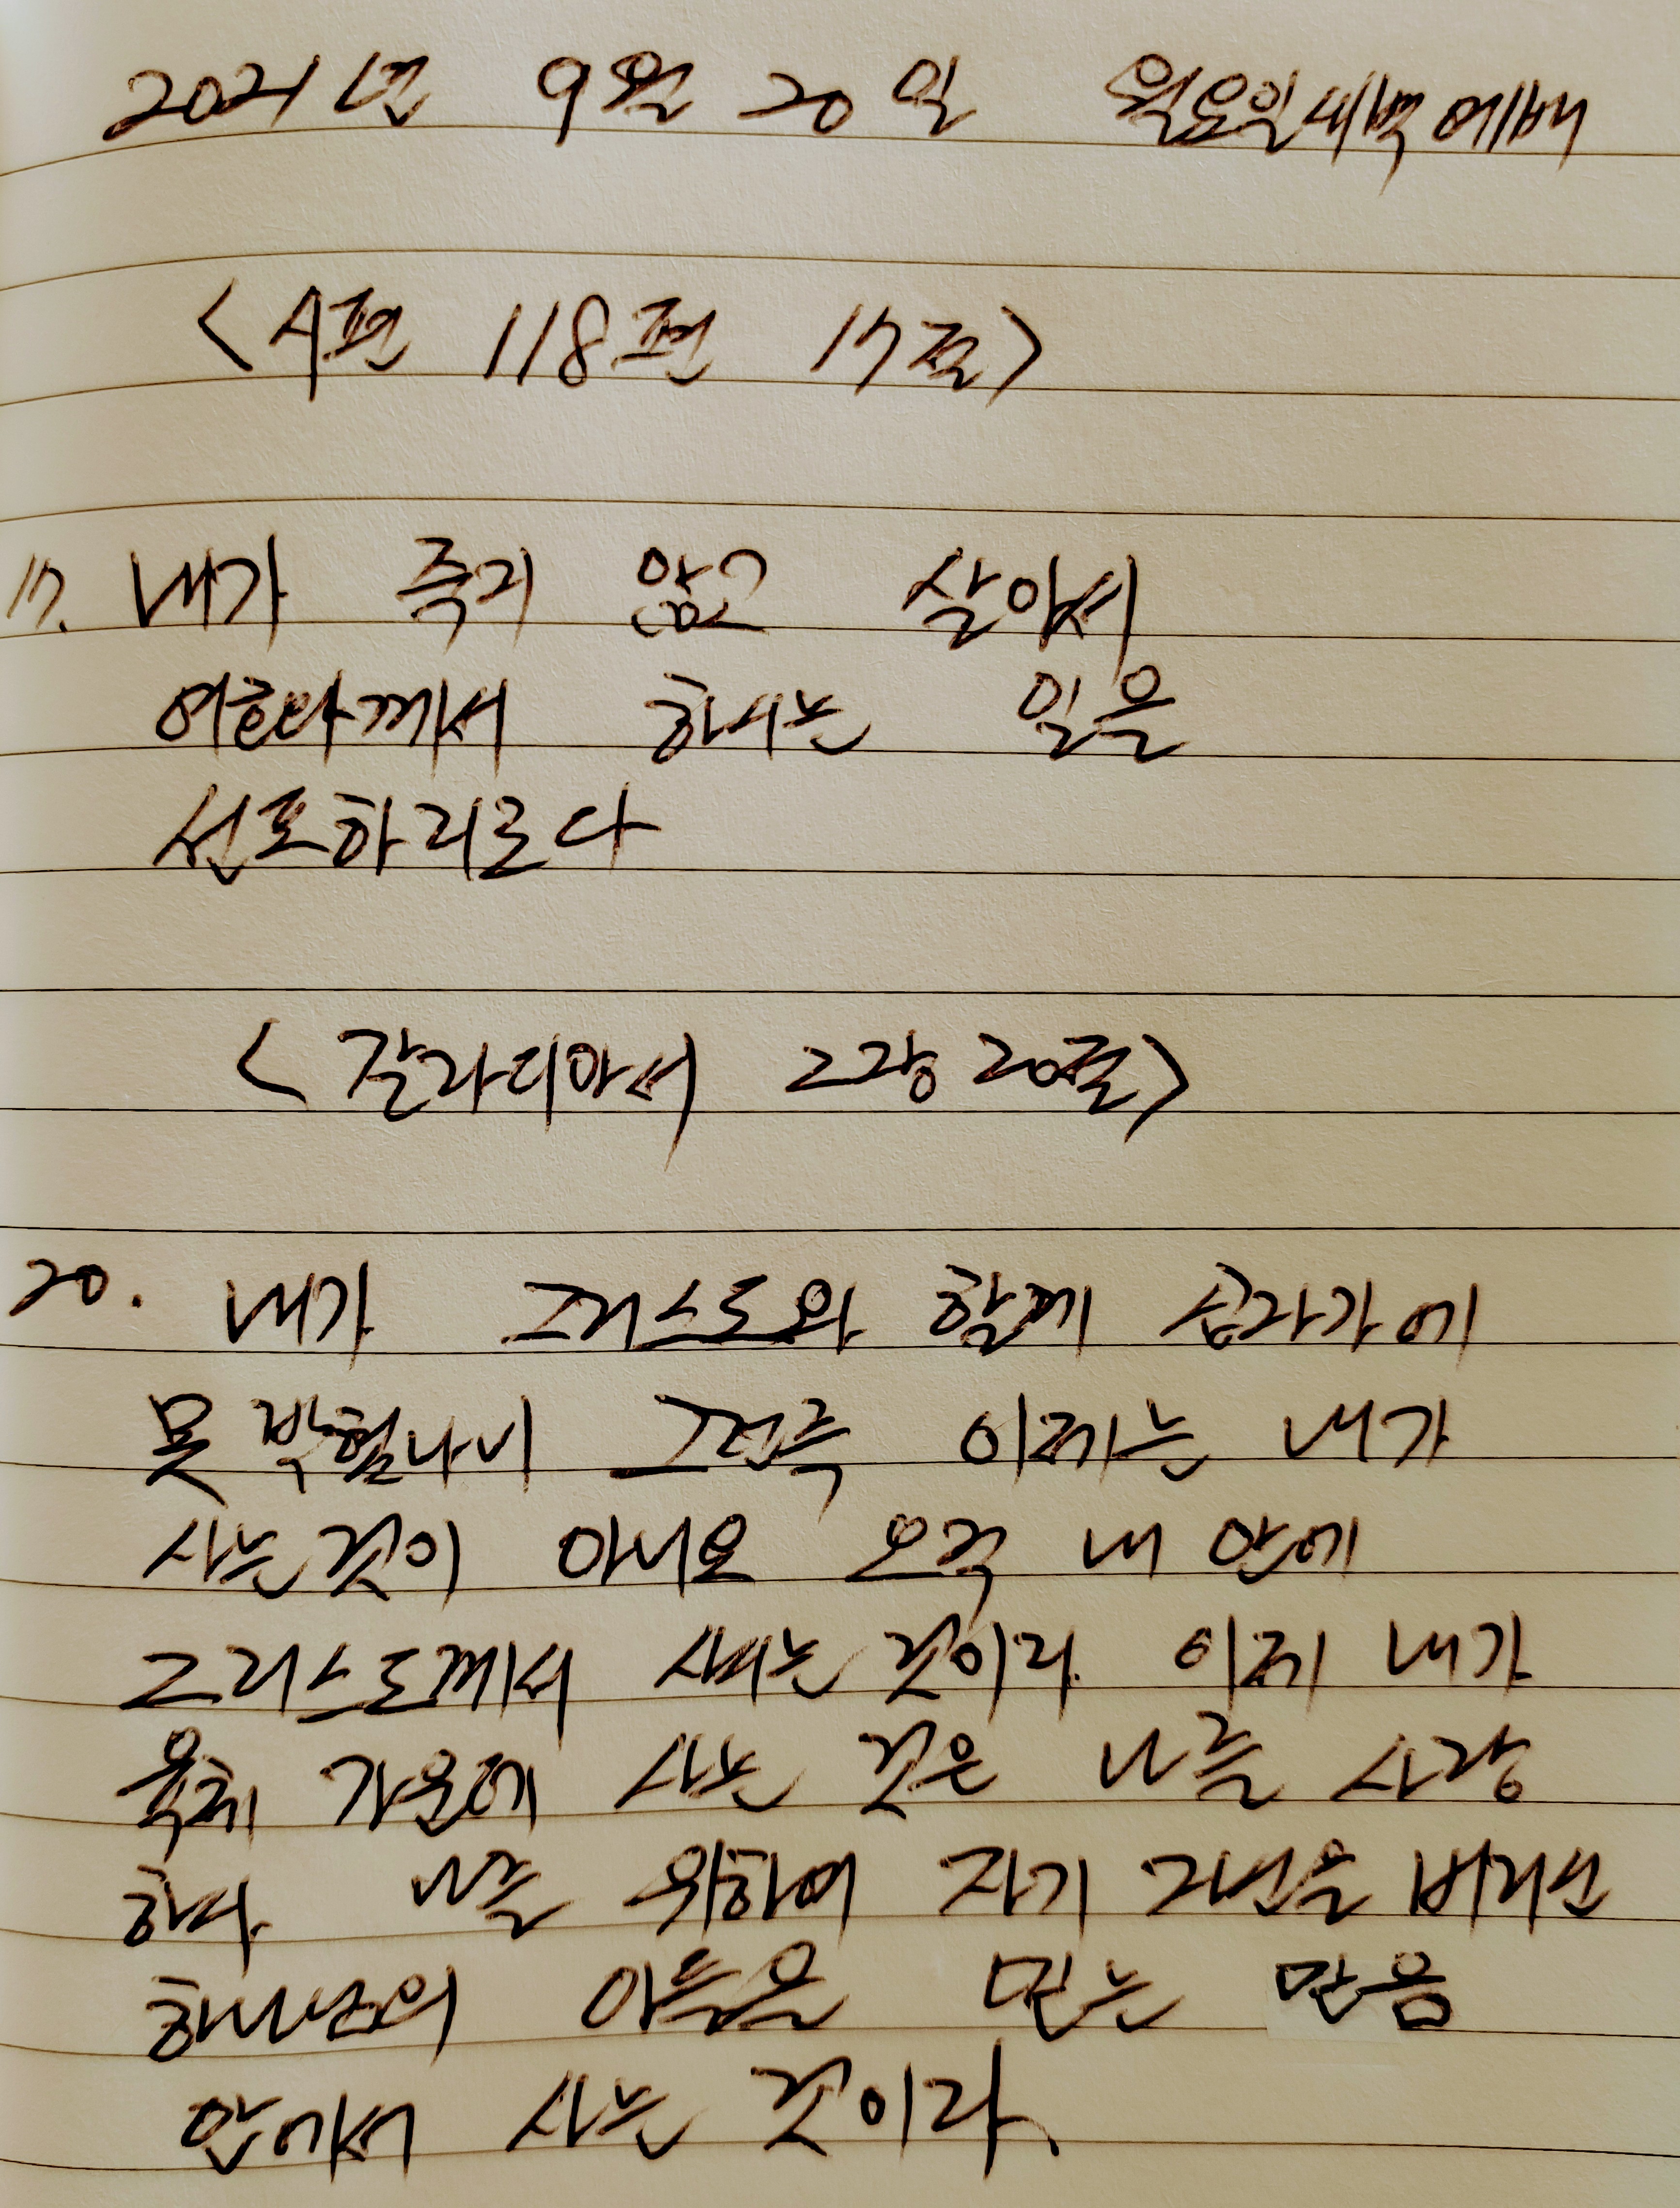 2021년 9월 20일 월요일새벽예배
<시편 118편 17절>
17. 내가 죽지 않고 살아서
여호와께서 하시는 일을
선포하리로다
<갈라디아서 2장 20절>
20. 내가 그리스도와 함께 십자가에
못 박혔나니 그런즉 이제는 내가
사는 것이 아니요 오직 내 안에
그리스도께서 사시는 것이라 이제 내가
육체 가운데 사는 것은 나를 사랑
하사 나를 위하여 자기 자신을 버리신
하나님의 아들을 믿는 믿음
안에서 사는 것이라